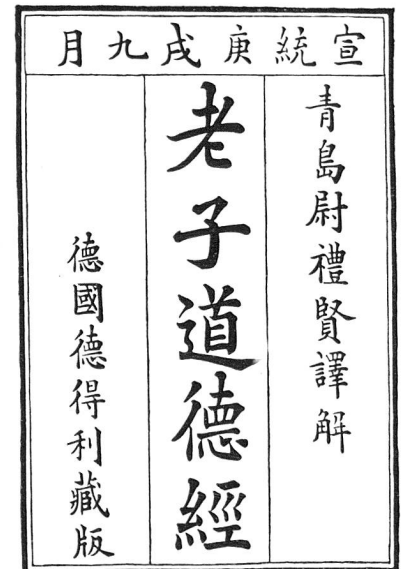 宣統庚戌九月
青島尉禮賢譯解
老子道德經
德國德得利藏版